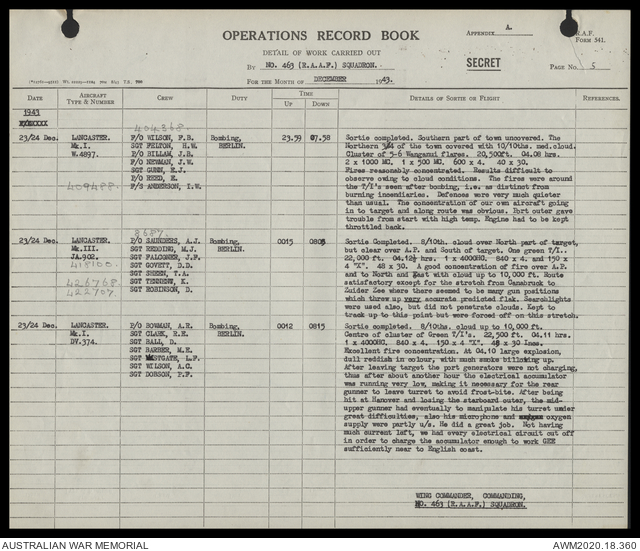 APPENDIX A.
R.A.F. Form 541.
OPERATIONS RECORD BOOK
DETAIL OF WORK CARRIED OUT
BY NO. 463 (R.A.A.F.) SQUADRON.
SECRET
PAGE No. 5
FOR THE MONTH OF DECEMBER 1943.
DATE AIRCRAFT TYPE & NUMBER CREW DUTY TIME UP DOWN DETAILS OF SORTIE OR FLIGHT REFERENCES.
1943
404368
23/24 Dec. LANCASTER. F/O WILSON, F.B. Bombing, 23.59 07.58 Sortie completed. Southern part of town uncovered. The
Mk.I. SGT FELTON, H.W. BERLIN. Northern 3/4 of the town covered with 10/10ths. med.cloud.
W.4897. F/O BILLAM, J.B. Cluster of 5-6 Wanganui flares. 20,500ft. 04.08 hrs.
F/O NEWMAN, J.W. 2 x 1000 MC. 1 x 500 MC. 600 x 4. 40 x 30.
SGT GUNN, E.J. Fires reasonably concentrated. Results difficult to
F/O REED, E. observe owing to cloud conditions. The fires were around
409488. F/S ANDERSON, I.W. the T/I's seen after bombing, i.e. as distinct from
burning incendiaries. Defences were very much quieter
than usual. The concentration of our own aircraft going
in to target and along route was obvious. Port outer gave
trouble from start with high temp. Engine had to be kept
throttled back.
8687.
23/24 Dec. LANCASTER. P/O SAUNDERS, A.J. Bombing, 0015 0805 Sortie Completed. 8/10th. cloud over North part of target,
Mk.III. SGT REDDING, M.J. BERLIN. but clear over A.P. and South of target. One green T/I..
JA.902. SGT FALCONER, J.F. 22,000 ft. 04.12½ hrs. 1 x 4000HC, 840 x 4. and 150 x
418100. SGT GOVETT, D.D. 4 "X". 48 x 30. A good concentration of fire over A.P.
SGT SHEEN, T.A. and to North and East with cloud up to 10,000 ft. Route
426768. SGT TENNENY, K. satisfactory except for the stretch from Osnabruck to
422707 SGT ROBINSON, D. Zuider Zee where there seemed to be many gun positions
which threw up very accurate predicted flak. Searchlights
were used also, but did not penetrate clouds. Kept to
track up to this point but were forced off on this stretch.
23/24 Dec. LANCASTER. P/O BOWMAN, A.R. Bombing, 0012 0815 Sortie completed. 8/10ths. cloud up to 10,000 ft.
Mk.I. SGT CLARK, R.E. BERLIN. Centre of cluster of Green T/I's. 22,500 ft. 04.11 hrs.
DV.374. SGT BALL, D. 1 x 4000HC. 840 x 4. 150 x 4 "X". 48 x 30 Incs.
SGT BARBER, M.E. Excellent fire concentration. At 04.10 large explosion,
SGT WESTGATE, L.F. dull reddish in colour, with much smoke billowing up.
SGT WILSON, A.C. After leaving target the port generators were not charging,
SGT DOBSON, P.F. thus after about another hour the electrical accumulator
was running very low, making it necessary for the rear
gunner to leave turret to avoid frost-bite. After being
hit at Hanover and losing the starboard outer, the mid-
upper gunner had eventually to manipulate his turret under
great difficulties, also his microphone and oxygen
supply were partly u/s. He did a great job. Not having
much current left, we had every electrical circuit cut off
in order to charge the accumulator enough to work GEE
sufficiently near to English coast.
WING COMMANDER, COMMANDING,
NO. 463 (R.A.A.F.) SQUADRON.
AUSTRALIAN WAR MEMORIAL
AWM2020.18.360